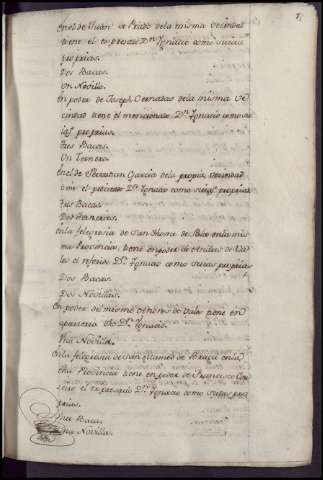 En el de Juan de Prado de la misma vecindad
tiene el expresado Dn. Ignacio como suias
proprias
Dos Bacas
Un Novillo.
En poder de Joseph Cernadas de la misma Ve
cindad tiene el mencionado Dn. Ignacio como su
ias proprias
Tres Bacas.
Un Ternero.
En el de Sebastian Garcia de la propia Vecindad
tiene el Dn. Ignacio como suias proprias
Tres Bacas.
Dos terneras.
En la felegresia de San de en la mis
ma Provincia, tiene en poder de de Va
le el referido Dn. Ignacio como suias proprias
Dos Bacas
Dos Novillas.
En poder del mismo de Vale tiene en
aparceria dho Dn. Ignacio
Una Novilla.
En la felegresia de San Mamed de en la
dha Provincia tiene en poder de Francisco
el expresado Dn. Ignacio como suias pro
prias.
Una Baca.
Una Novilla.